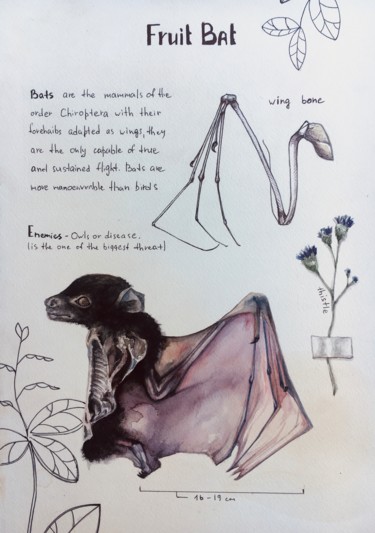 Fruit Bat
Bats are the mammals of the
order Chiroptera with their
forehaibs adapted as wings, they
are the only capable of true
and sustained flight. Bats are
more manoeuvrable than birds
wing bone
Enemies - Owls or disease.
(is the one of the biggest threat)
thistle
16-19 cm